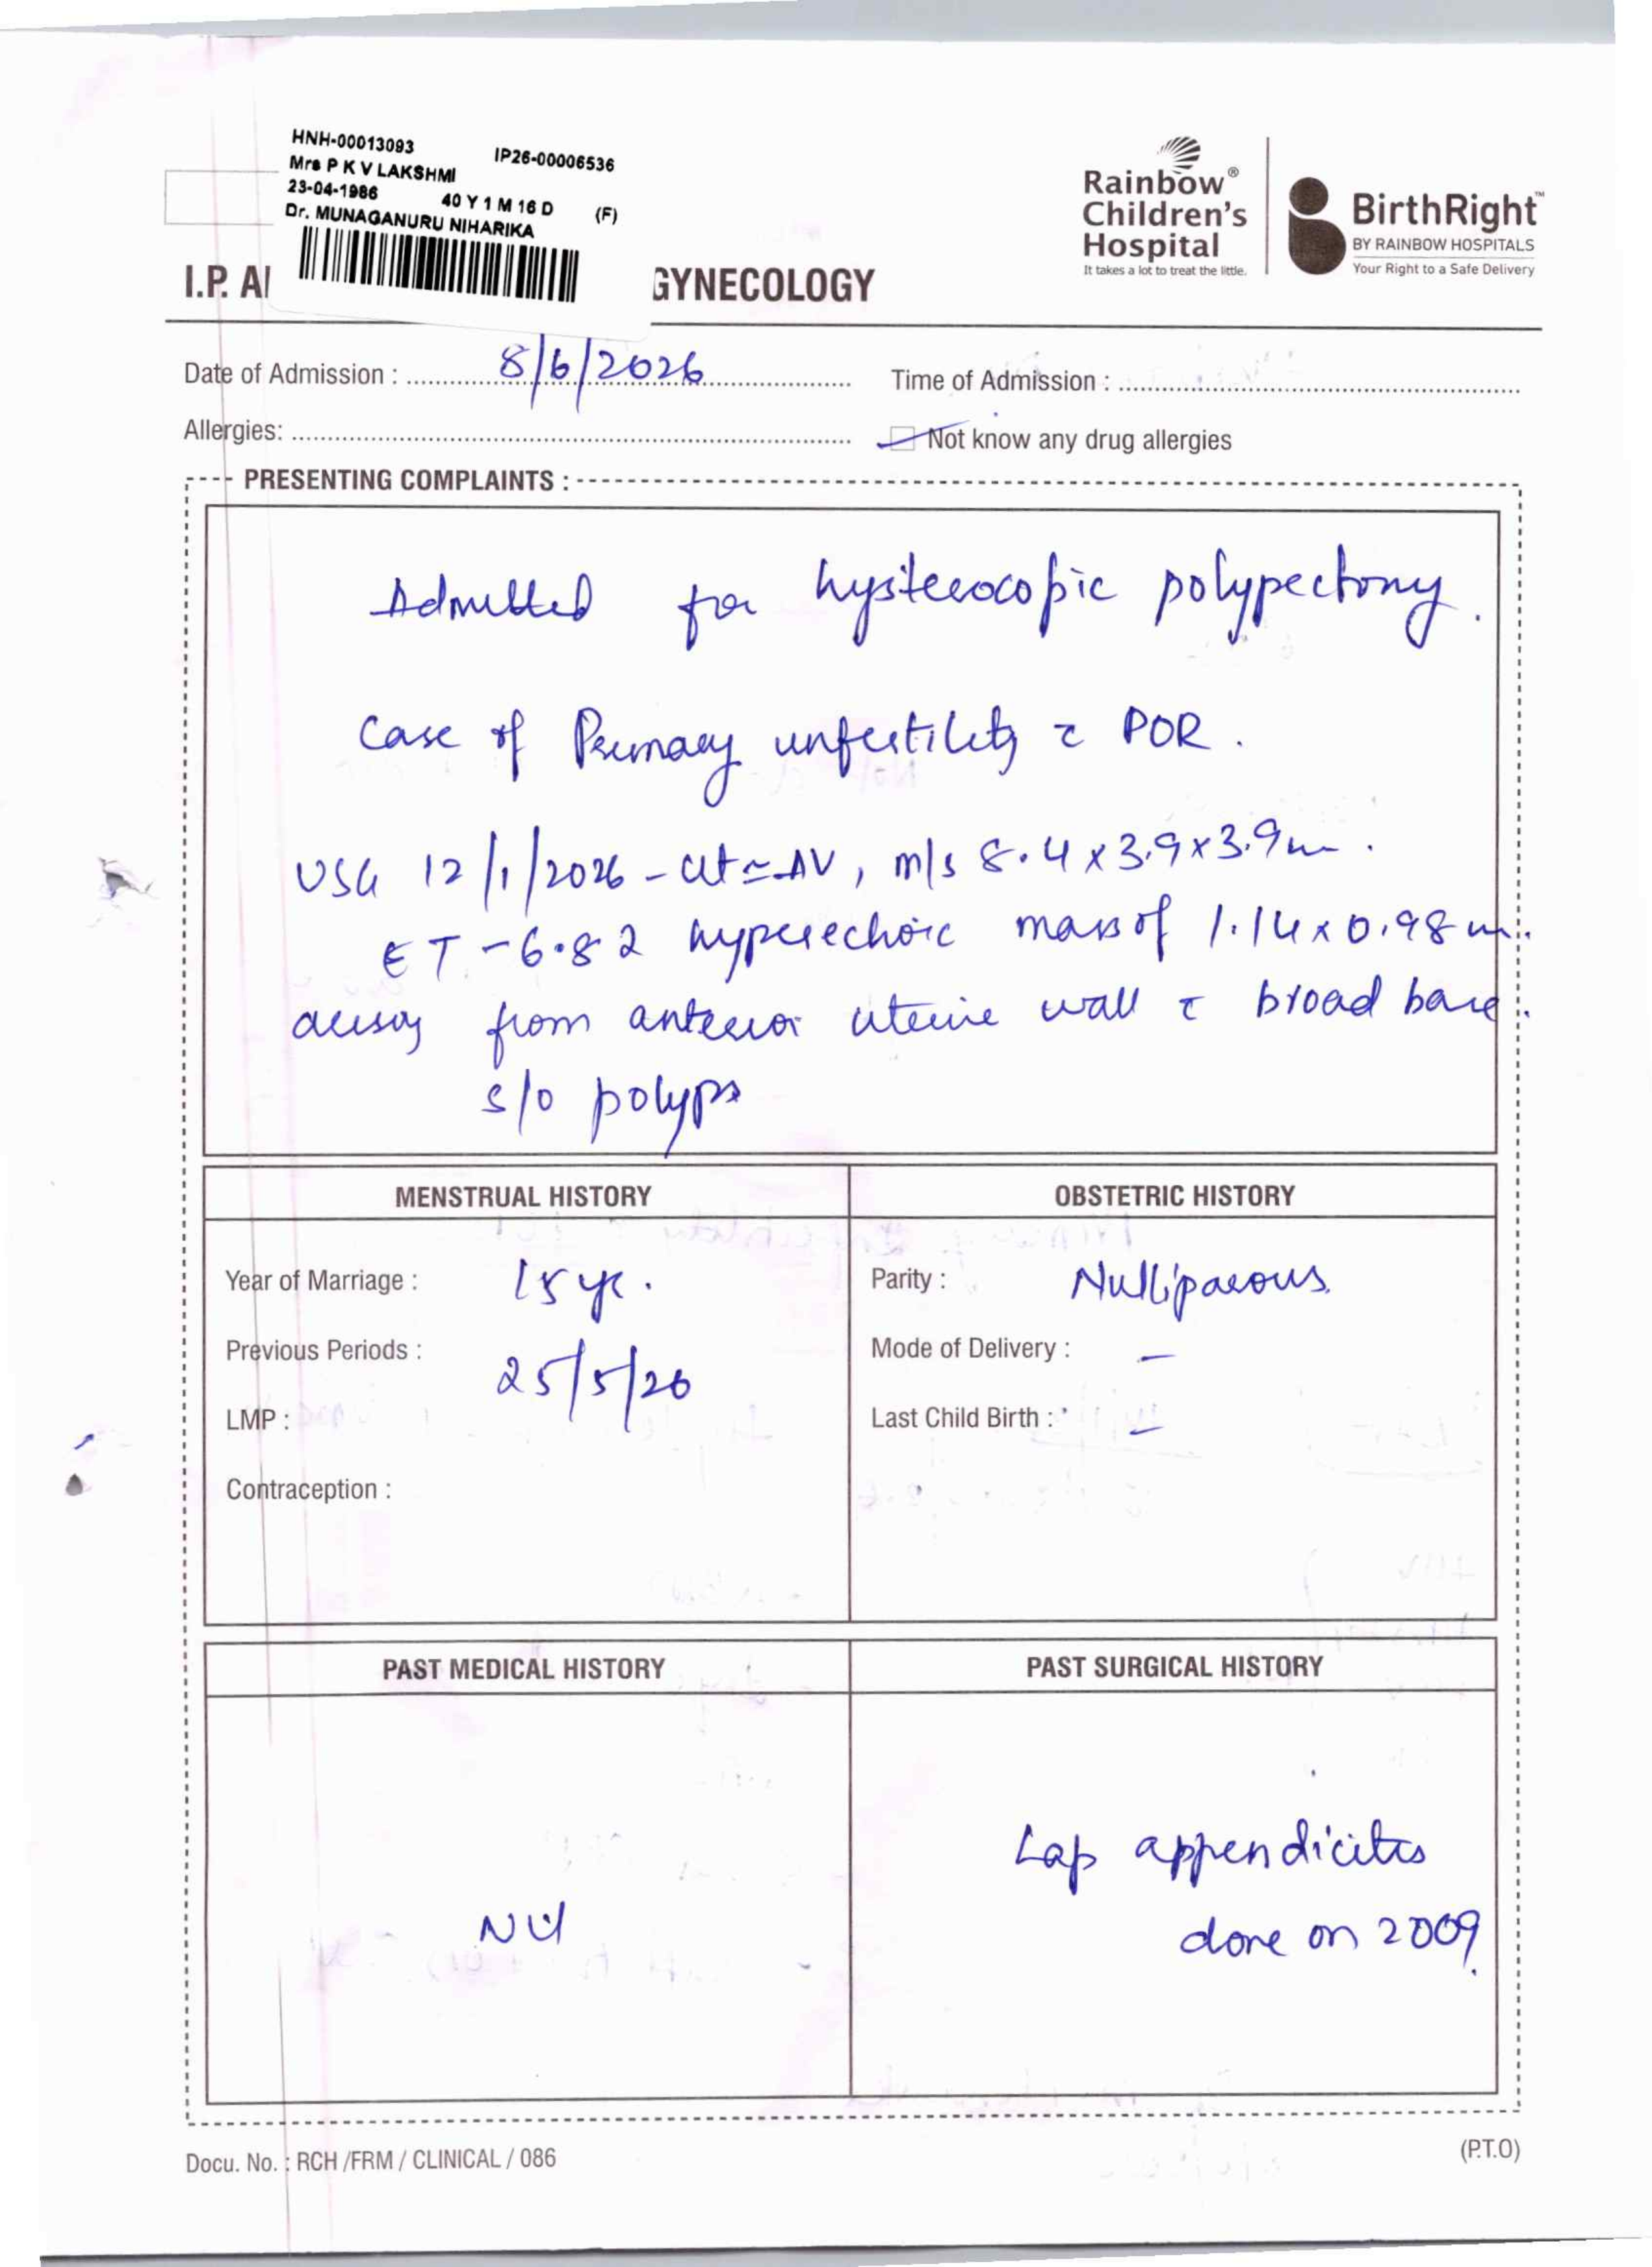 HNH-00013093 IP26-00006536
Mrs P K V LAKSHMI
23-04-1986 40 Y 1 M 16 D (F)
Dr. MUNAGANURU NIHARIKA
Rainbow®
Children's
Hospital
It takes a lot to treat the little.
BirthRight™
BY RAINBOW HOSPITALS
Your Right to a Safe Delivery
I.P. A GYNECOLOGY
Date of Admission : 8/6/2026 Time of Admission :
Allergies: Not know any drug allergies
PRESENTING COMPLAINTS :
Admitted for hysterocopic polypectomy.
Case of Primary unfertility c̄ POR.
USG 12/1/2026 - ut ≃ AV, m/s 8.4 x 3.9 x 3.9 cm.
ET - 6.82 hyperechoic mass of 1.14 x 0.98 cm.
arising from anterior uterine wall c̄ broad base.
s/o polyps
MENSTRUAL HISTORY OBSTETRIC HISTORY
Year of Marriage : 15 yr. Parity : Nulliparous
Previous Periods : 25/5/26 Mode of Delivery : –
LMP : Last Child Birth : –
Contraception :
PAST MEDICAL HISTORY PAST SURGICAL HISTORY
Lap appendicitis
Nil done on 2009.
Docu. No. : RCH /FRM / CLINICAL / 086 (P.T.O)